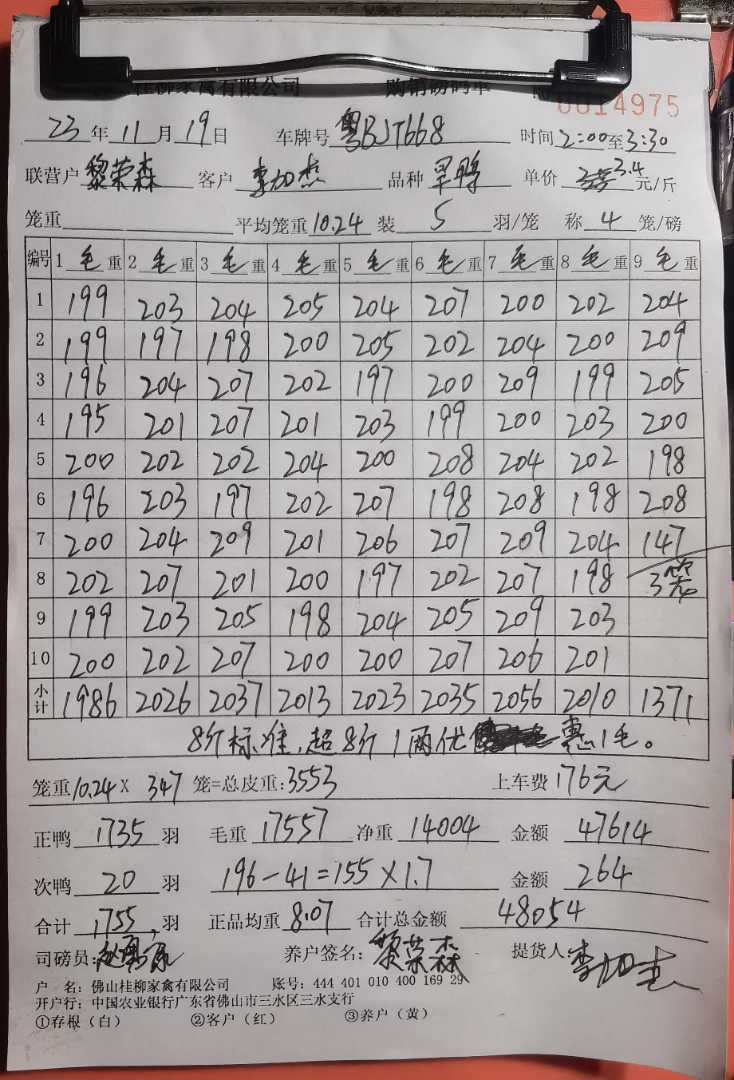 桂柳家禽有限公司 购销磅码单 0014975
23年11月19日 车牌号 粤BJT668 时间2:00至3:30
联营户 黎荣森 客户 李加杰 品种 旱鸭 单价 3.4 元/斤
笼重 平均笼重10.24 装 5 羽/笼 称 4 笼/磅
编号 1毛重 2毛重 3毛重 4毛重 5毛重 6毛重 7毛重 8毛重 9毛重
1 199 203 204 205 204 207 200 202 204
2 199 197 198 200 205 202 204 200 209
3 196 204 207 202 197 200 209 199 205
4 195 201 207 201 203 199 200 203 200
5 200 202 202 204 200 208 204 202 198
6 196 203 197 202 207 198 208 198 208
7 200 204 209 201 206 207 209 204 147
8 202 207 201 200 197 202 207 198 3笼
9 199 203 205 198 204 205 209 203
10 200 202 207 200 200 207 206 201
小计 1986 2026 2037 2013 2023 2035 2056 2010 1371
8斤标准,超8斤1两优惠1毛。
笼重10.24×347笼=总皮重:3553 上车费176元
正鸭 1735 羽 毛重 17557 净重 14004 金额 47614
次鸭 20 羽 196-41=155×1.7 金额 264
合计 1755 羽 正品均重 8.07 合计总金额 48054
司磅员: 养户签名: 黎荣森 提货人 李加杰
户 名: 佛山桂柳家禽有限公司 账号: 444 401 010 400 169 29
开户行: 中国农业银行广东省佛山市三水区三水支行
①存根(白) ②客户(红) ③养户(黄)